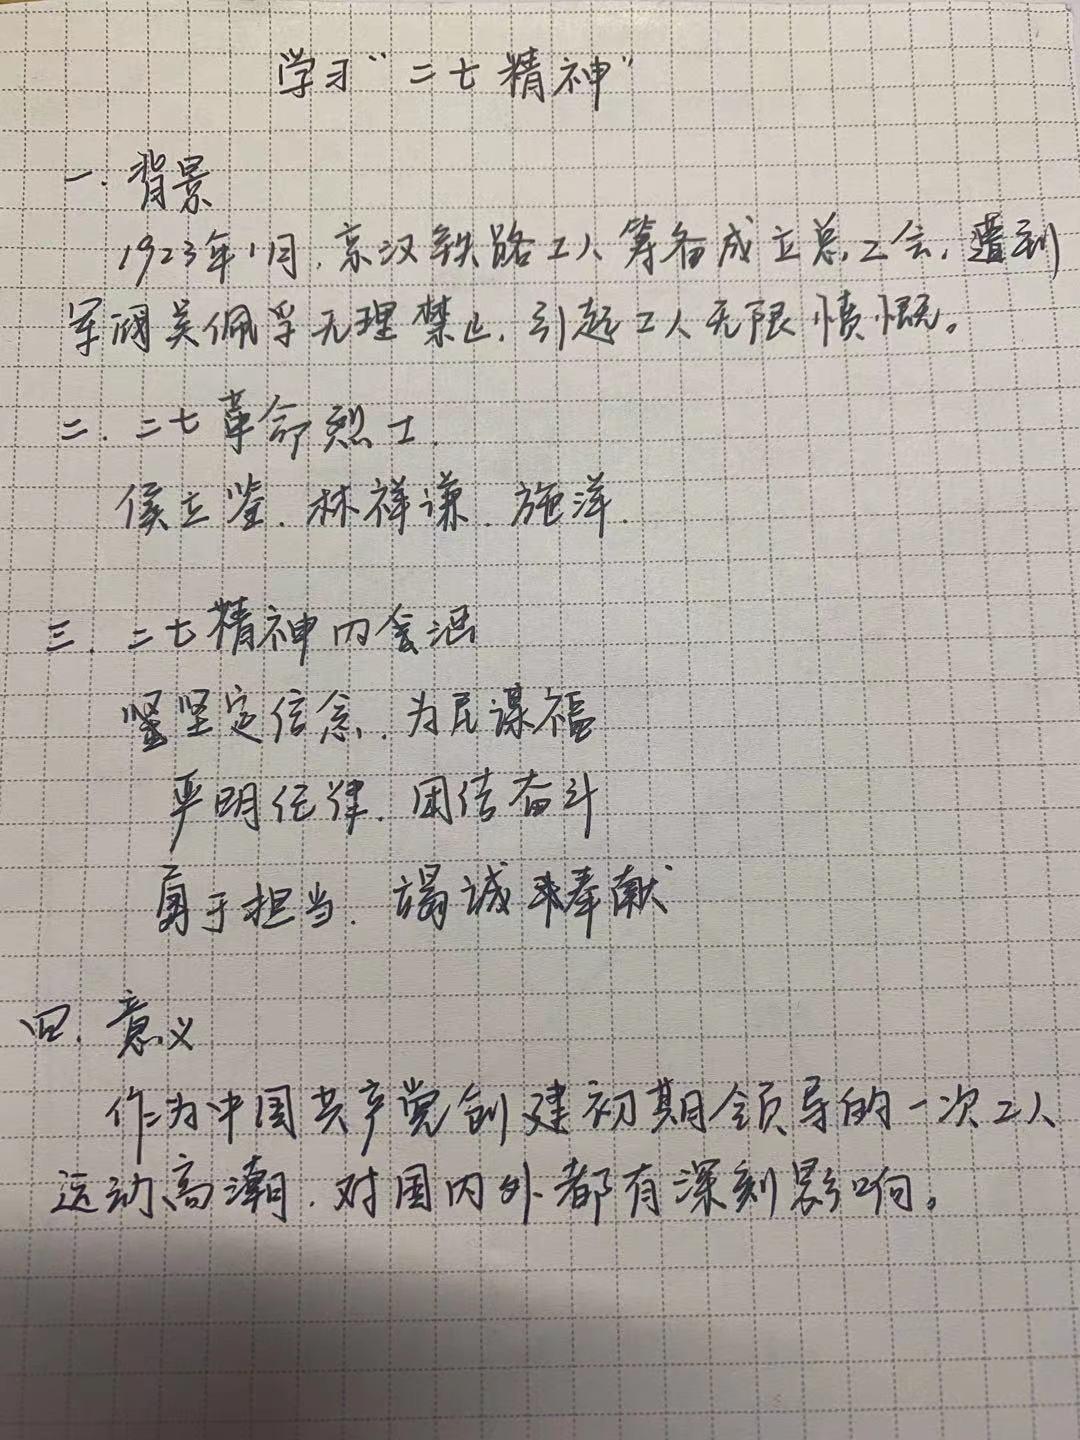 学习“二七精神”
一.背景
1923年1月,京汉铁路工人筹备成立总工会,遭到
军阀吴佩孚无理禁止,引起工人无限愤慨。
二.二七革命烈士.
侯立鉴.林祥谦.施洋.
三.二七精神内含涵
坚坚定信念.为民谋福
严明纪律.团结奋斗
勇于担当.竭诚奉献
四.意义
作为中国共产党创建初期领导的一次工人
运动高潮.对国内外都有深刻影响。